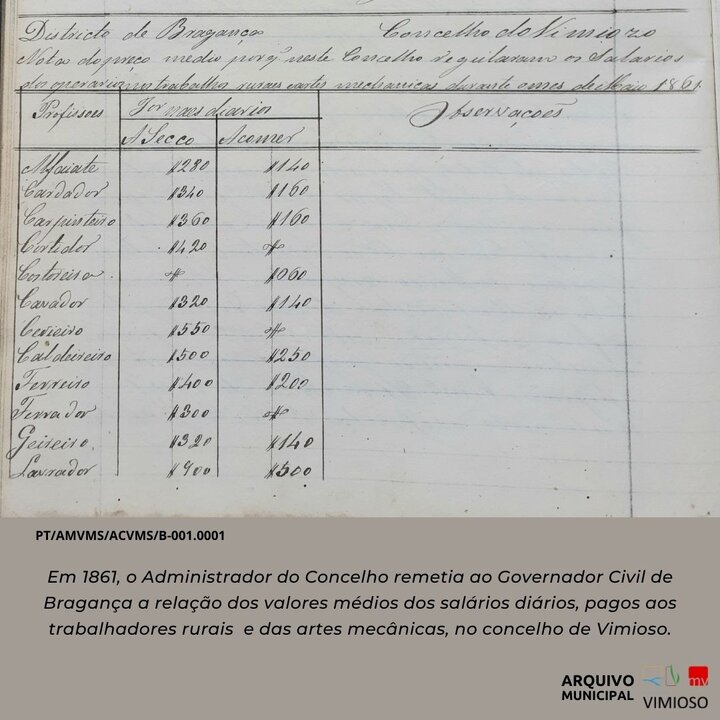 Districto de Bragança Concelho do Vimiozo
Nota do preço medio porq' neste Concelho regularam os Salarios
dos operarios nos trabalhos ruraes e artes mechanicas durante o mes de Maio 1861
Profissoes Jornaes diarios Observações
A Secco A comer
Alfaiate $280 $140
Cardador $340 $160
Carpinteiro $360 $160
Cortidor $420 $
Costoreira $ $060
Cavador $320 $140
Cerieiro $550 $
Caldeireiro $500 $250
Ferreiro $400 $200
Ferrador $300 $
Geireiro $320 $140
Lavrador $900 $500
PT/AMVMS/ACVMS/B-001.0001
Em 1861, o Administrador do Concelho remetia ao Governador Civil de
Bragança a relação dos valores médios dos salários diários, pagos aos
trabalhadores rurais e das artes mecânicas, no concelho de Vimioso.
ARQUIVO
MUNICIPAL
mv
VIMIOSO